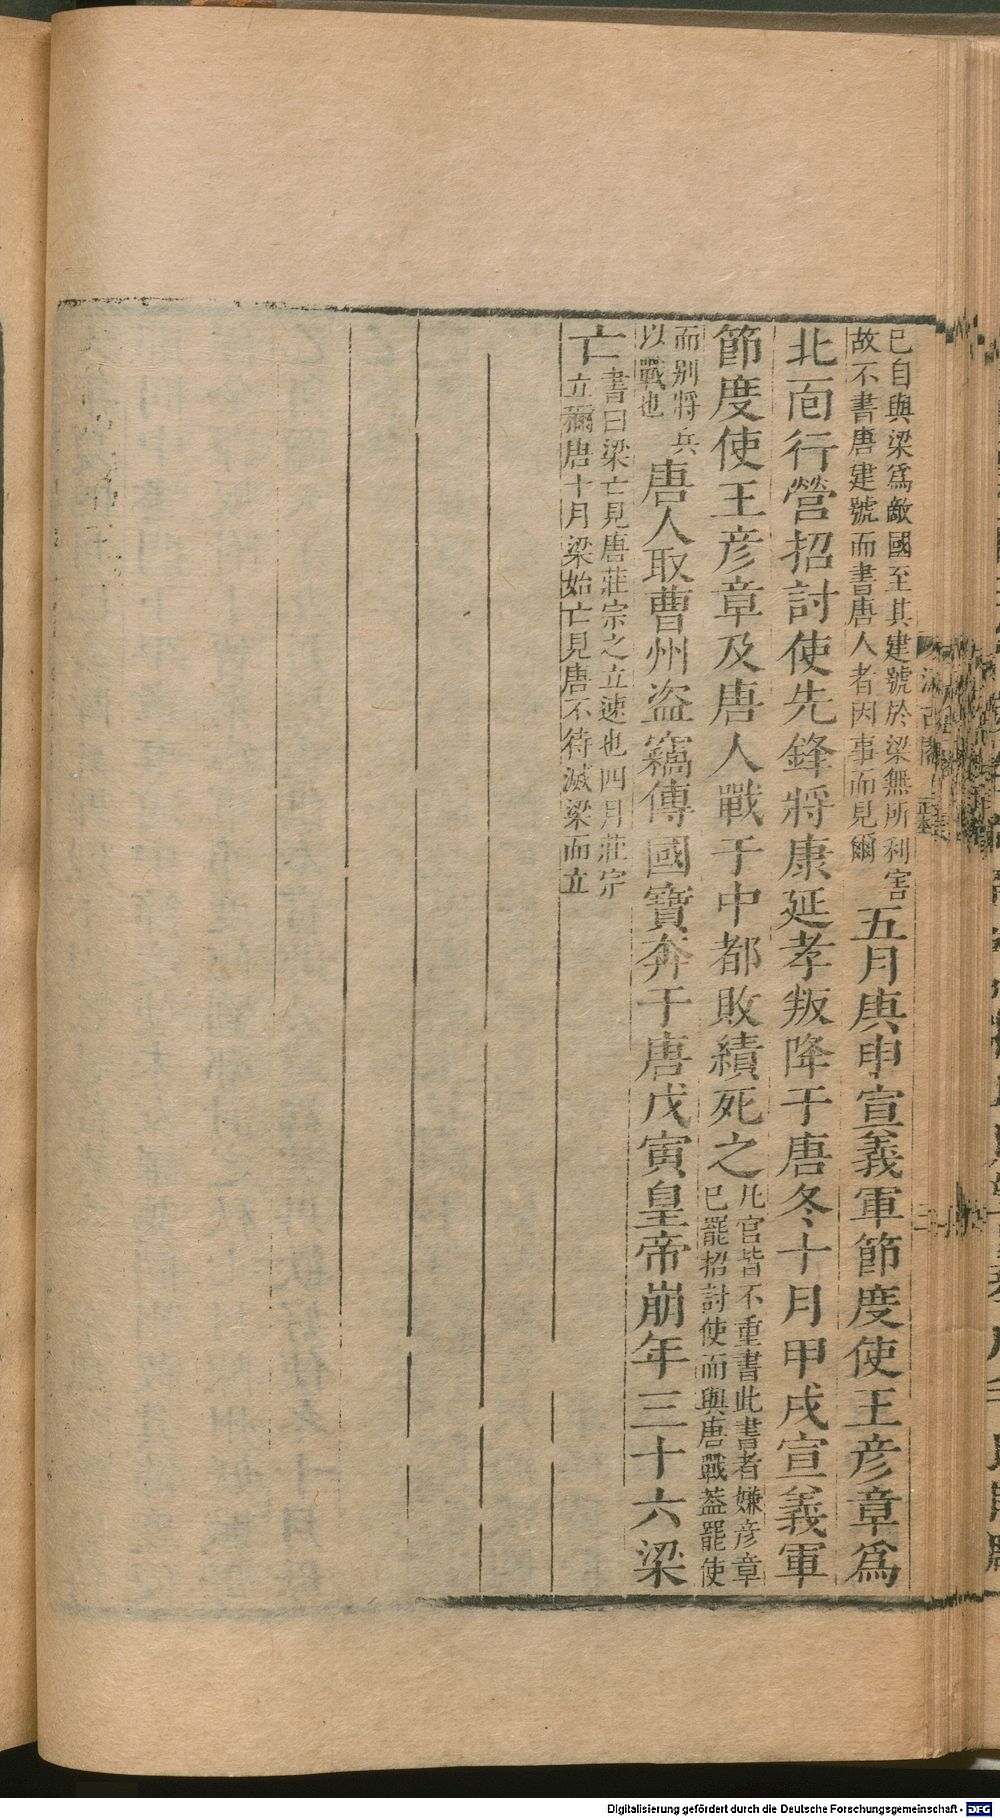 已自與梁爲敵國至其建號於梁無所利害
故不書唐建號而書唐人者因事而見爾
五月庚申宣義軍節度使王彦章爲
北面行營招討使先鋒將康延孝叛降于唐冬十月甲戌宣義軍
節度使王彦章及唐人戰于中都敗績死之
凡官皆不重書此書者嫌彦章
已罷招討使而與唐戰葢罷使
而別將兵
以戰也
唐人取曹州盗竊傳國寶奔于唐戊寅皇帝崩年三十六梁
亡
書曰梁亡見唐莊宗之立速也四月莊宗
立稱唐十月梁始亡見唐不待滅梁而立
汲古閣
Digitalisierung gefördert durch die Deutsche Forschungsgemeinschaft - DFG